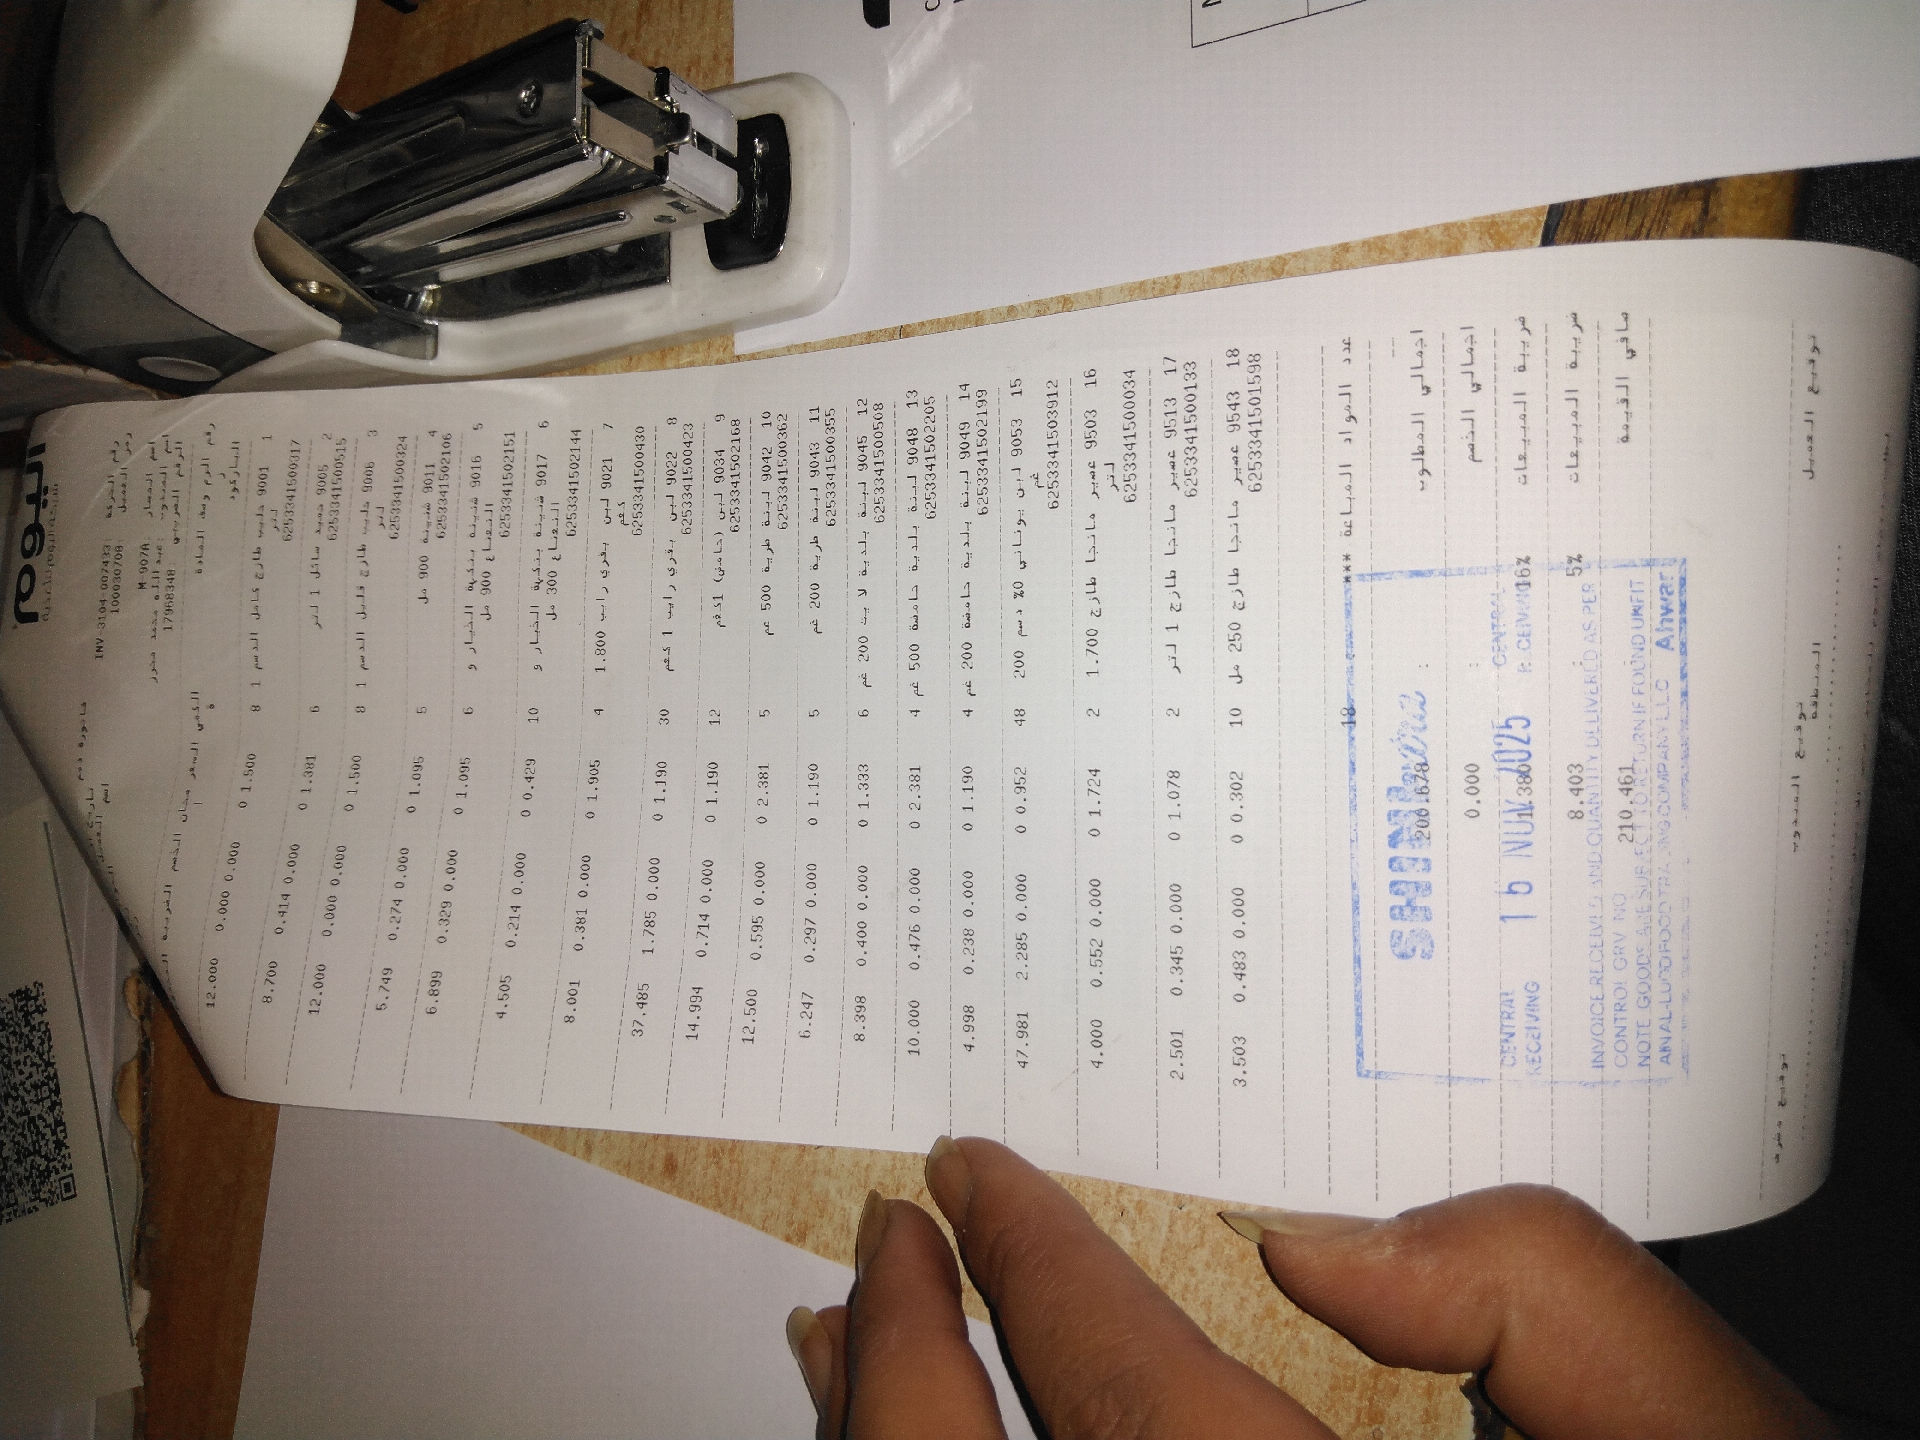 اليوم
INV-3104-007433: رقم الحركة
100030708: رمز العميل
M-907A: اسم المسار
اسم المندوب: عبدالله محمد
17968348: الرقم الضريبي
رقم الرم وصف المادة
الباركود
1 9001 حليب طازج كامل الدسم 1 لتر 8 1.500 0 0.000 0.000 12.000
6253341500317
2 9005 حميد سائل 1 لتر 6 1.381 0 0.000 0.414 8.700
6253341500515
3 9006 حليب طازج قليل الدسم 1 لتر 8 1.500 0 0.000 0.000 12.000
6253341500324
4 9011 شنينة 900 مل 5 1.095 0 0.000 0.274 5.749
6253341502106
5 9016 شنينة بنكهة الخيار و النعناع 900 مل 6 1.095 0 0.000 0.329 6.899
6253341502151
6 9017 شنينة بنكهة الخيار و النعناع 300 مل 10 0.429 0 0.000 0.214 4.505
6253341502144
7 9021 لبن بقري رايب 1.800 كغم 4 1.905 0 0.000 0.381 8.001
6253341500430
8 9022 لبن بقري رايب 1 كغم 30 1.190 0 0.000 1.785 37.485
6253341500423
9 9034 لبن (حامض) 1كغم 12 1.190 0 0.000 0.714 14.994
6253341502168
10 9042 لبنة طرية 500 غم 5 2.381 0 0.000 0.595 12.500
6253341500362
11 9043 لبنة طرية 200 غم 5 1.190 0 0.000 0.297 6.247
6253341500355
12 9045 لبنة بلدية لايت 200 غم 6 1.333 0 0.000 0.400 8.398
6253341500508
13 9048 لبنة بلدية حامضة 500 غم 4 2.381 0 0.000 0.476 10.000
6253341502205
14 9049 لبنة بلدية حامضة 200 غم 4 1.190 0 0.000 0.238 4.998
6253341502199
15 9053 لبن يوناني 0% دسم 200 غم 48 0.952 0 0.000 2.285 47.981
6253341503912
16 9503 عصير مانجا طازج 1.700 لتر 2 1.724 0 0.000 0.552 4.000
6253341500034
17 9513 عصير مانجا طازج 1 لتر 2 1.078 0 0.000 0.345 2.501
6253341500133
18 9543 عصير مانجا طازج 250 مل 10 0.302 0 0.000 0.483 3.503
6253341501598
عدد المواد المباعة *** 18
اجمالي المطلوب : 200.678
اجمالي الخصم : 0.000
ضريبة المبيعات 16% 1.380
ضريبة المبيعات 5% : 8.403
صافي القيمة 210.461
CENTRAL RECEIVING
16 NOV 2025
CENTRAL RECEIVING
INVOICE RECEIVED AND QUANTITY DELIVERED AS PER
CONTROL GRV NO
NOTE GOODS ARE SUBJECT TO RETURN IF FOUND UNFIT
Ahwar
توقيع العميل
توقيع المندوب
المنطقة
توقيع مشرف